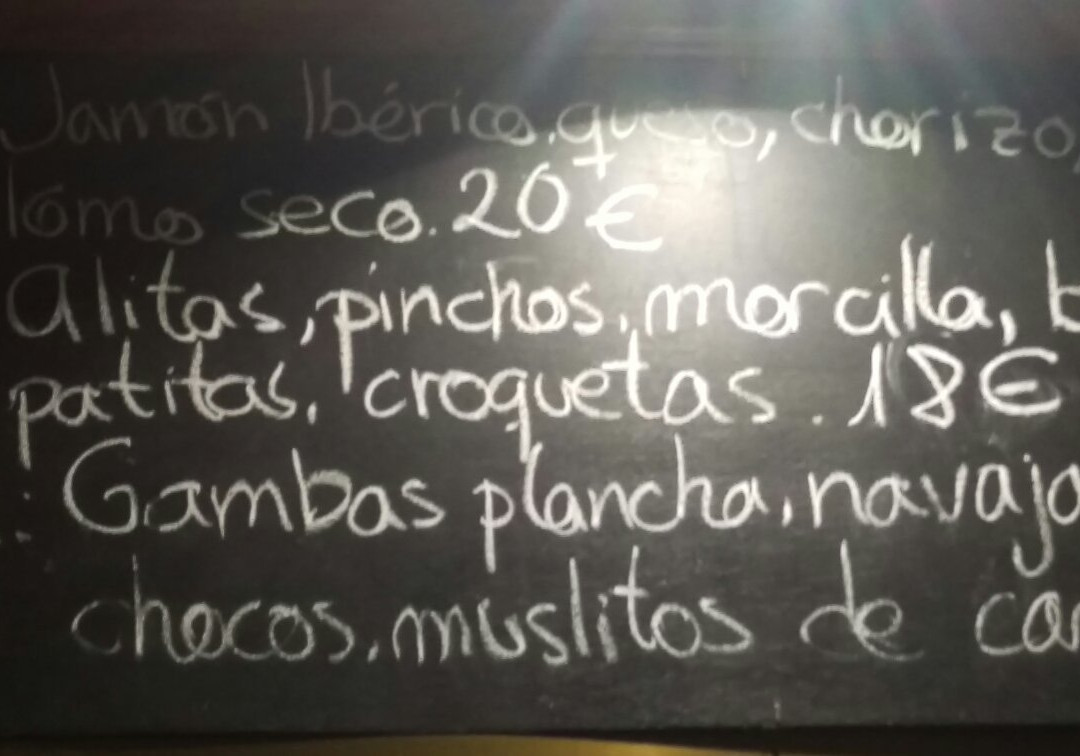 Jamón Ibérico, queso, chorizo,
lomo seco. 20€
Alitas, pinchos, morcilla,
patitas, croquetas. 18€
Gambas plancha, navaja
chocos, muslitos de